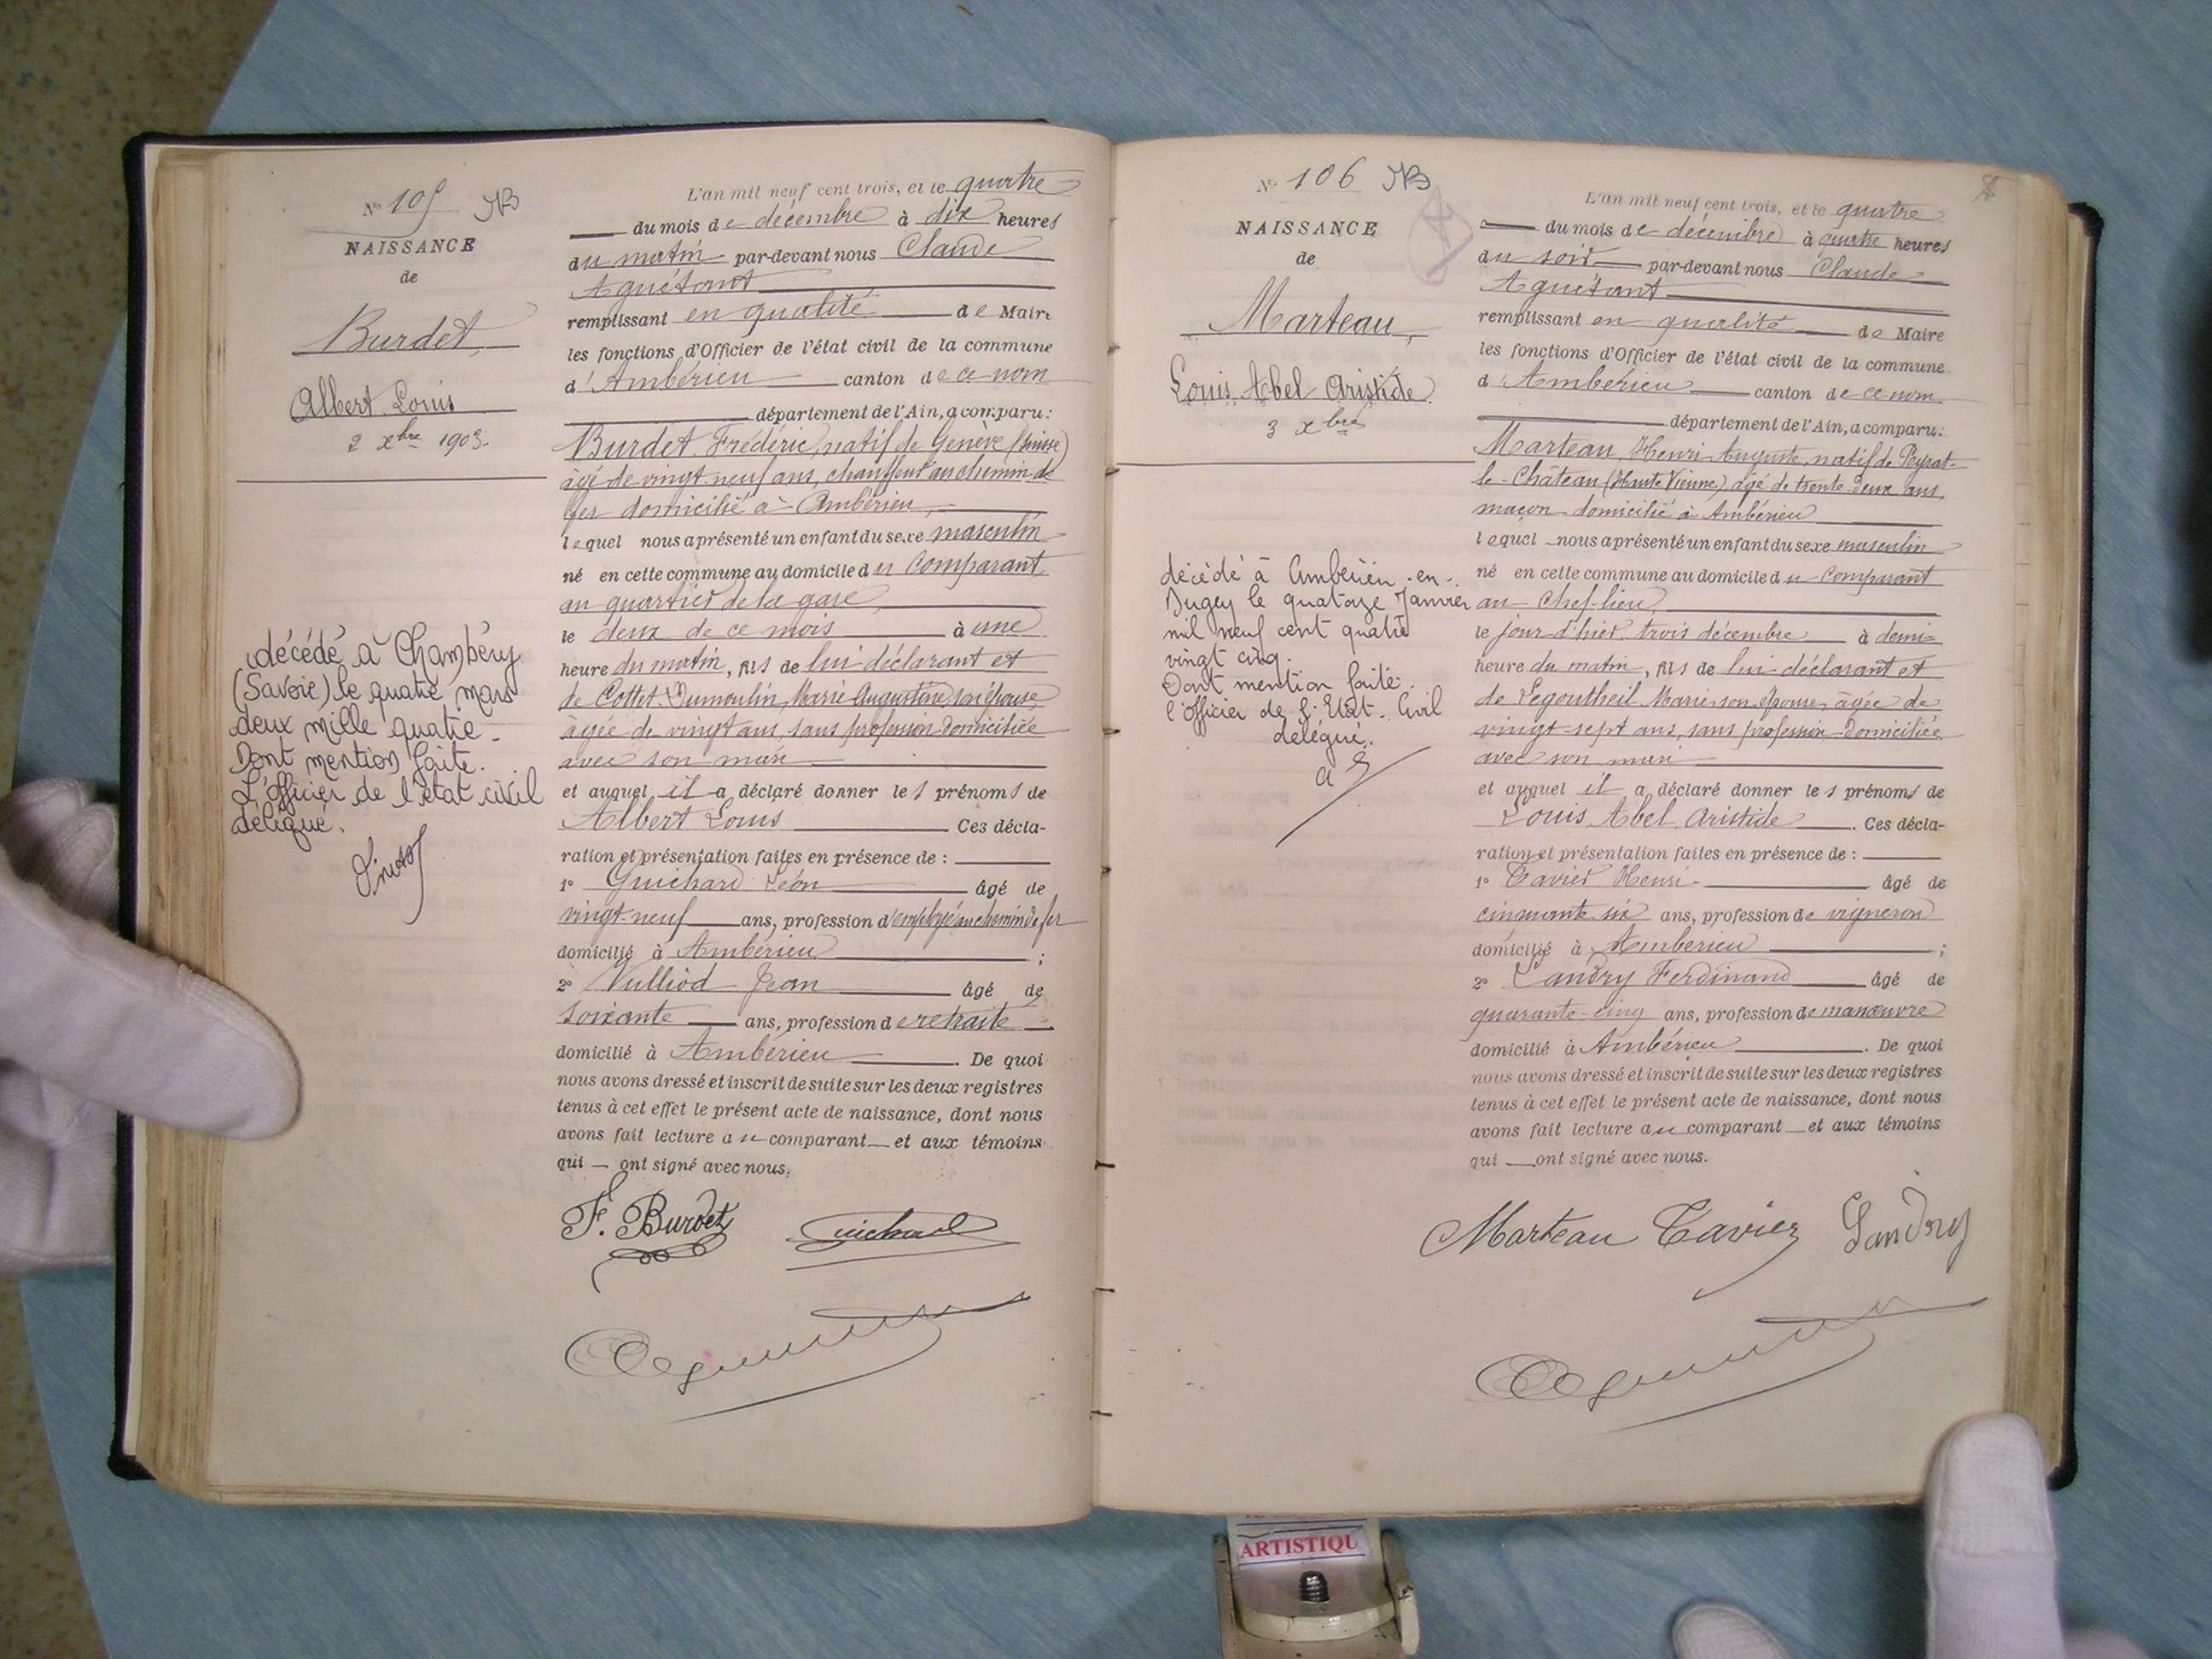 N° 105 NB
NAISSANCE
de
Burdet,
Albert Louis
2 xbre 1903.
décédé à Chambéry
(Savoie) le quatre mars
deux mille quatre.
Dont mention faite.
L'officier de l'état civil
délégué.
L'an mil neuf cent trois, et le quatre
du mois de décembre à dix heures
du matin par-devant nous Claude
Aguétant
remplissant en qualité de Maire
les fonctions d'Officier de l'état civil de la commune
d'Ambérieu canton de ce nom
département de l'Ain, a comparu:
Burdet Frédéric, natif de Genève (Suisse)
âgé de vingt neuf ans, chauffeur au chemin de
fer domicilié à Ambérieu,
lequel nous a présenté un enfant du sexe masculin
né en cette commune au domicile du comparant
au quartier de la gare,
le deux de ce mois à une
heure du matin, fils de lui déclarant et
de Cottet-Dumoulin, Marie Augustine, son épouse,
âgée de vingt ans, sans profession domiciliée
avec son mari
et auquel il a déclaré donner les prénoms de
Albert Louis Ces décla-
ration et présentation faites en présence de :
1° Guichard Léon âgé de
vingt-neuf ans, profession d'employé au chemin de fer
domicilié à Ambérieu ;
2° Vulliod Jean âgé de
soixante ans, profession de retraité
domicilié à Ambérieu . De quoi
nous avons dressé et inscrit de suite sur les deux registres
tenus à cet effet le présent acte de naissance, dont nous
avons fait lecture au comparant et aux témoins
qui ont signé avec nous.
F. Burdet Guichard
N° 106 NB
NAISSANCE
de
Marteau,
Louis Abel Aristide
3 xbre
décédé à Ambérieu-en-
Bugey le quatorze Janvier
mil neuf cent quatre
vingt cinq.
Dont mention faite.
l'Officier de l'Etat-Civil
délégué.
L'an mil neuf cent trois, et le quatre
du mois de décembre à quatre heures
du soir par-devant nous Claude
Aguétant
remplissant en qualité de Maire
les fonctions d'Officier de l'état civil de la commune
d'Ambérieu canton de ce nom
département de l'Ain, a comparu:
Marteau, Henri Auguste, natif de Peyrat-
le-Château (Haute Vienne) âgé de trente deux ans,
maçon domicilié à Ambérieu
lequel nous a présenté un enfant du sexe masculin
né en cette commune au domicile du comparant
au Chef-lieu
le jour d'hier, trois décembre à demi
heure du matin, fils de lui déclarant et
de Legoutheil Marie son épouse, âgée de
vingt-sept ans, sans profession domiciliée
avec son mari
et auquel il a déclaré donner les prénoms de
Louis Abel Aristide . Ces décla-
ration et présentation faites en présence de :
1° Tavier Henri âgé de
cinquante six ans, profession de vigneron
domicilié à Ambérieu ;
2° Landry Ferdinand âgé de
quarante-cinq ans, profession de manœuvre
domicilié à Ambérieu . De quoi
nous avons dressé et inscrit de suite sur les deux registres
tenus à cet effet le présent acte de naissance, dont nous
avons fait lecture au comparant et aux témoins
qui ont signé avec nous.
Marteau Tavier Landry
ARTISTIQU